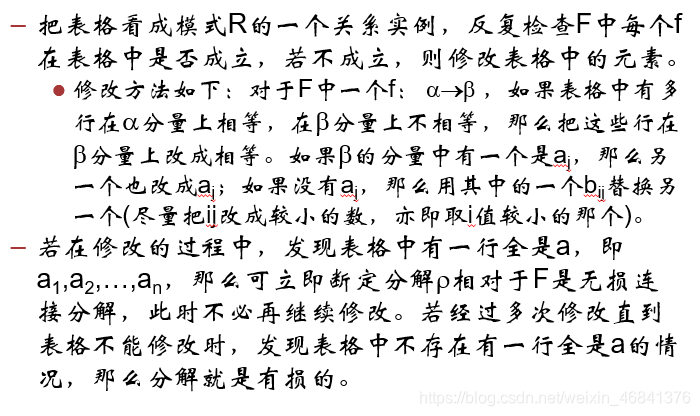 – 把表格看成模式R的一个关系实例，反复检查F中每个f
在表格中是否成立，若不成立，则修改表格中的元素。
● 修改方法如下：对于F中一个f：α→β，如果表格中有多
行在α分量上相等，在β分量上不相等，那么把这些行在
β分量上改成相等。如果β的分量中有一个是aj，那么另
一个也改成aj；如果没有aj，那么用其中的一个bij替换另
一个(尽量把ij改成较小的数，亦即取i值较小的那个)。
– 若在修改的过程中，发现表格中有一行全是a，即
a1,a2,…,an，那么可立即断定分解ρ相对于F是无损连
接分解，此时不必再继续修改。若经过多次修改直到
表格不能修改时，发现表格中不存在有一行全是a的情
况，那么分解就是有损的。
https://blog.csdn.net/weixin_46841376